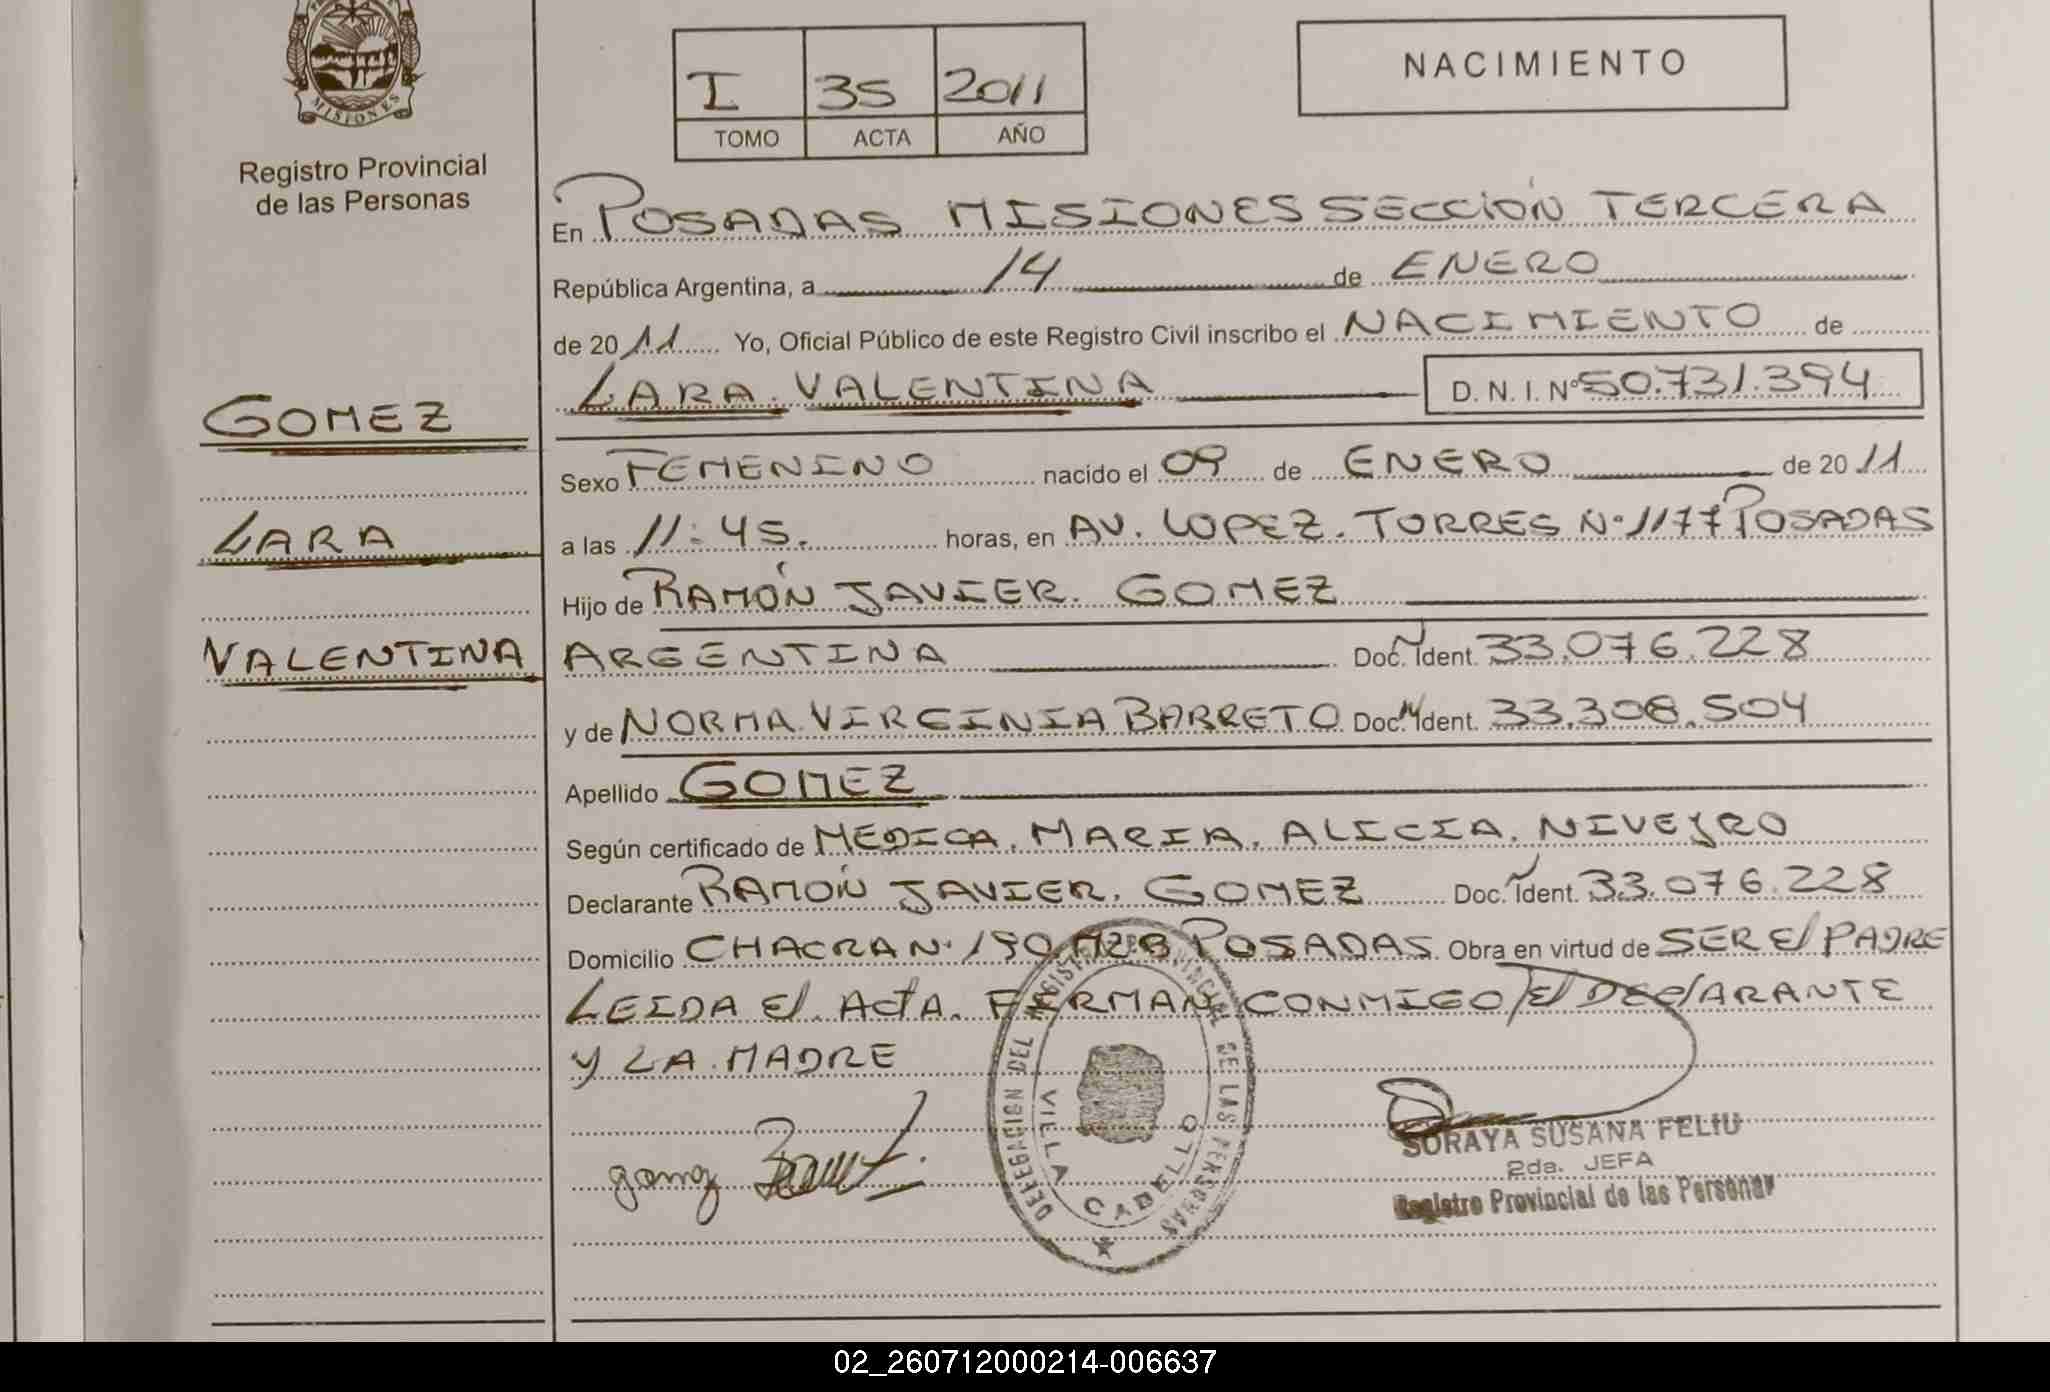 MISIONES
Registro Provincial
de las Personas
GOMEZ
LARA
VALENTINA
I 35 2011
TOMO ACTA AÑO
NACIMIENTO
En POSADAS MISIONES SECCIÓN TERCERA
República Argentina, a 14 de ENERO
de 2011 Yo, Oficial Público de este Registro Civil inscribo el NACIMIENTO de
LARA VALENTINA D. N. I. Nº 50.731.394
Sexo FEMENINO nacido el 09 de ENERO de 2011
a las 11:45. horas, en AV. LOPEZ. TORRES Nº 1177 POSADAS
Hijo de RAMÓN JAVIER. GOMEZ
ARGENTINA Doc. Ident. 33.076.228
y de NORMA VIRGINIA BARRETO Doc. Ident. 33.308.504
Apellido GOMEZ
Según certificado de MEDICA. MARIA. ALICIA. NIVEYRO
Declarante RAMÓN JAVIER. GOMEZ Doc. Ident. 33.076.228
Domicilio CHACRA Nº 190 MZ B POSADAS. Obra en virtud de SER El PADRE
LEIDA El. ACTA. FIRMAN CONMIGO El DEClARANTE
Y LA MADRE
DELEGACION DEL REGISTRO PROVINCIAL DE LAS PERSONAS
VILLA CABELLO
SORAYA SUSANA FELIU
2da. JEFA
Registro Provincial de las Personas
02_260712000214-006637